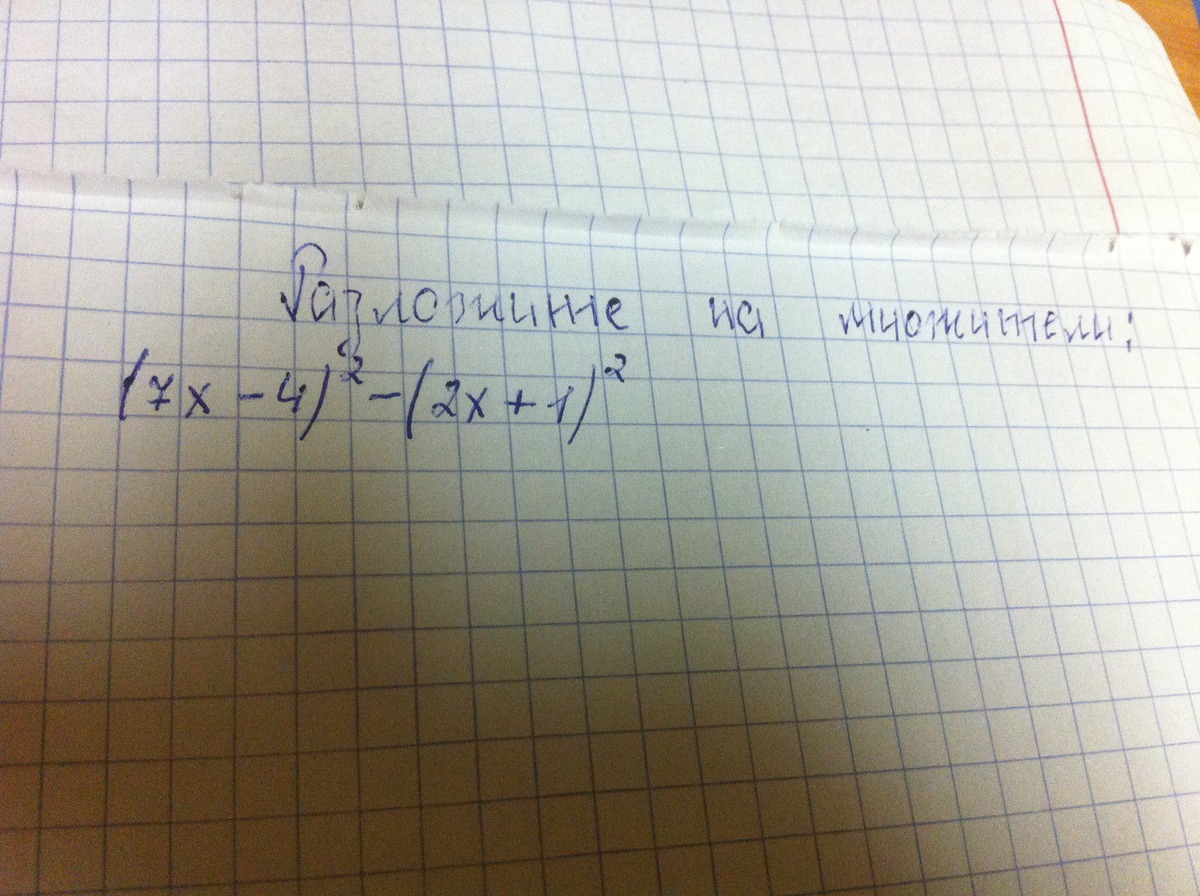 Разложите на множители:
(7x - 4)² - (2x + 1)²